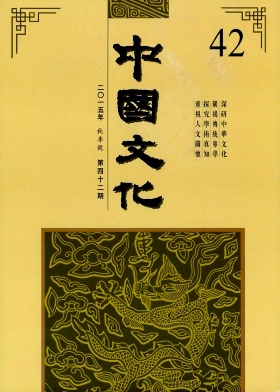 42
深研中華文化
闡揚傳統專學
探究學術真知
重視人文關懷
中國文化
二〇一五年 秋季號 第四十二期